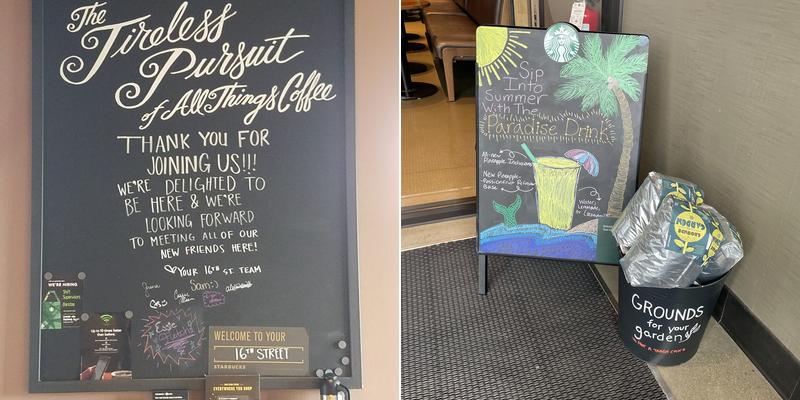 The
Tireless
Pursuit
of All Things Coffee
THANK YOU FOR
JOINING US!!!
WE'RE DELIGHTED TO
BE HERE & WE'RE
LOOKING FORWARD
TO MEETING ALL OF OUR
NEW FRIENDS HERE!
YOUR 16TH ST. TEAM
Sam :)
WE'RE HIRING
Shift
Supervisors
Baristas
Up to 10 times faster
than before.
WELCOME TO YOUR
16TH STREET
STARBUCKS
EVERYWHERE YOU SHOP
Sip
Into
Summer
With The
Paradise Drink
All-new
Pineapple Inclusions
New Pineapple-
Passionfruit Refresher
Base
Water,
Lemonade,
or Coconutmilk
GROUNDS
for your
garden
GARDEN